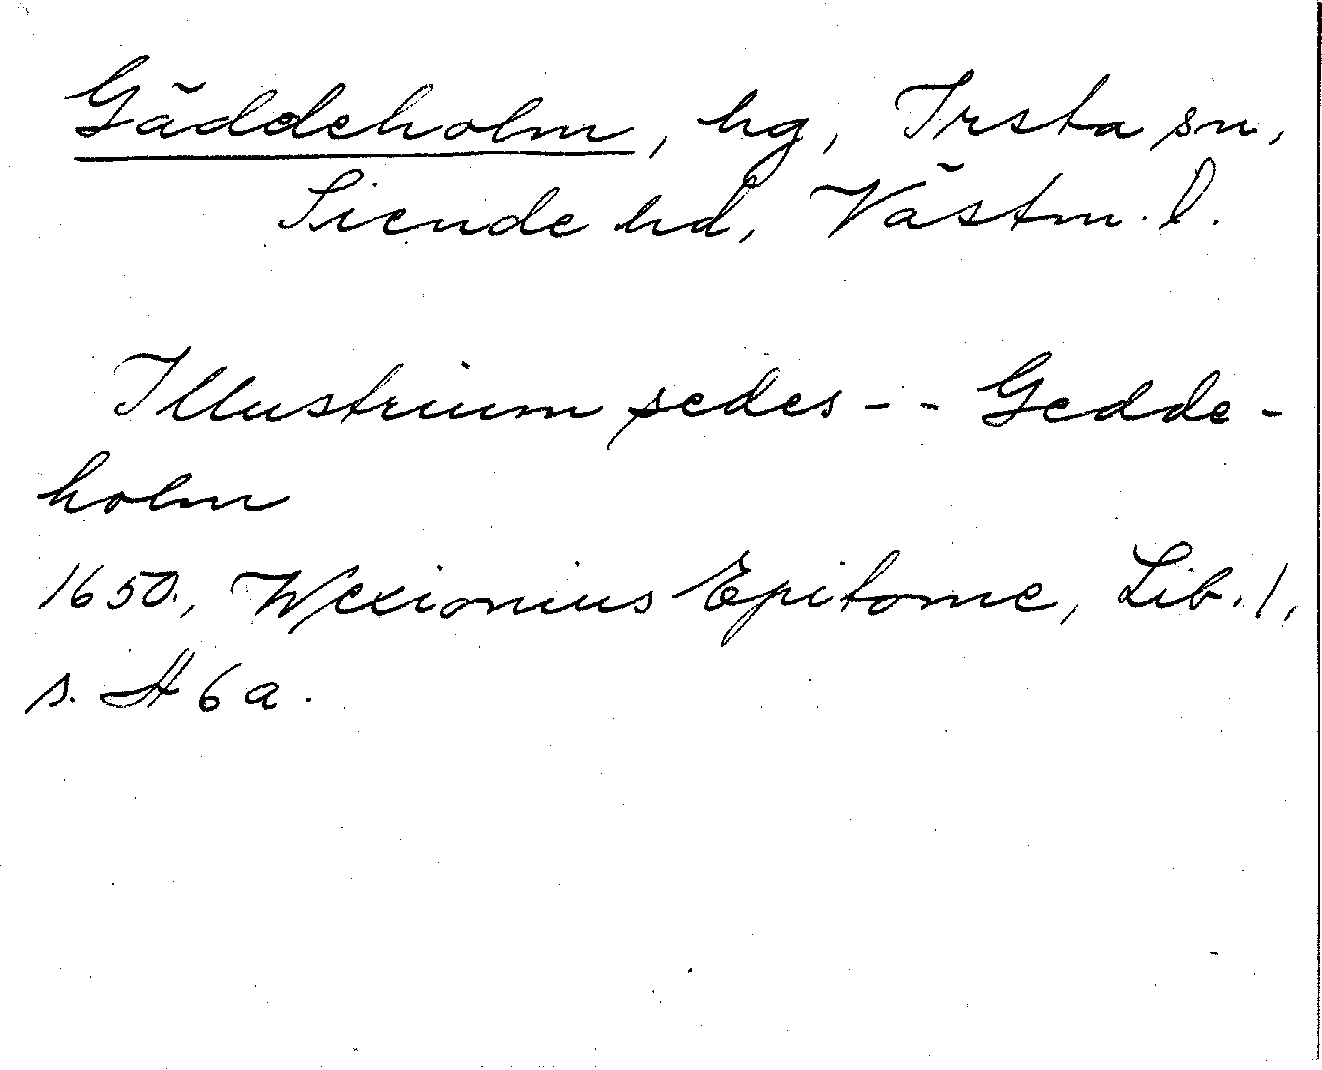 Gäddeholm, hg, Irsta sn,
Siende hd, Västm. l.
Illustrium sedes - - Gedde-
holm
1650, Wexionius Epitome, Lib. 1,
s. H 6 a.